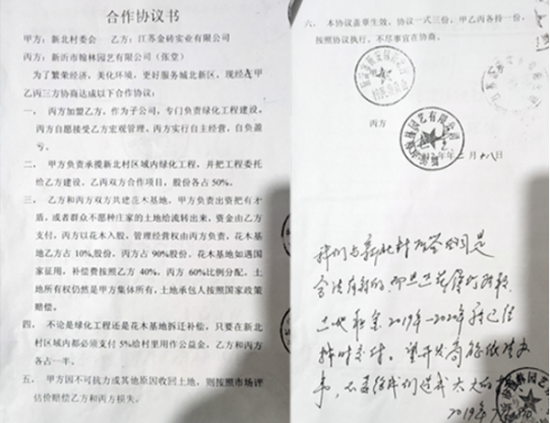 合作协议书
甲方：新北村委会 乙方：江苏金砖实业有限公司
丙方：新沂市翰林园艺有限公司（张堂）
为了繁荣经济、美化环境，更好服务城北新区，现经甲
乙丙三方协商达成以下合作协议：
一、 丙方加盟乙方，作为子公司，专门负责绿化工程建设。
丙方自愿接受乙方宏观管理，丙方实行自主经营，自负盈
亏。
二、 甲方负责承揽新北村区域内绿化工程，并把工程委托
给乙方建设。乙丙双方合作项目，股份各占50%。
三、 乙方和丙方双方共建花木基地，甲方负责出资把有矛
盾，或者群众不愿种庄家的土地给流转出来，资金由乙方
支付，丙方以花木入股，管理经营权由丙方负责，花木基
地乙方占10%股份，丙方占90%股份。花木基地如遇国
家征用，补偿费按照乙方40%，丙方60%比例分配，土
地所有权仍然是甲方集体所有，土地承包人按照国家政策
赔偿。
四、 不论是绿化工程还是花木基地拆迁补偿，只要在新北
村区域内都必须支付5%给村里用作公益金，乙方和丙方
各占一半。
五、 甲方因不可抗力或其他原因收回土地，则按照市场评
估价赔偿乙方和丙方损失。
六、 本协议盖章生效，协议一式三份，甲乙丙各持一份，
按照协议执行，不尽事宜在协商。
丙方
翰林园艺有限公司
年 二月十八日
我们与新北村签合同是
合法有效的，
土地租金2019年—2020年 已经
按时支付。望开发商能依法办
事，
2019年